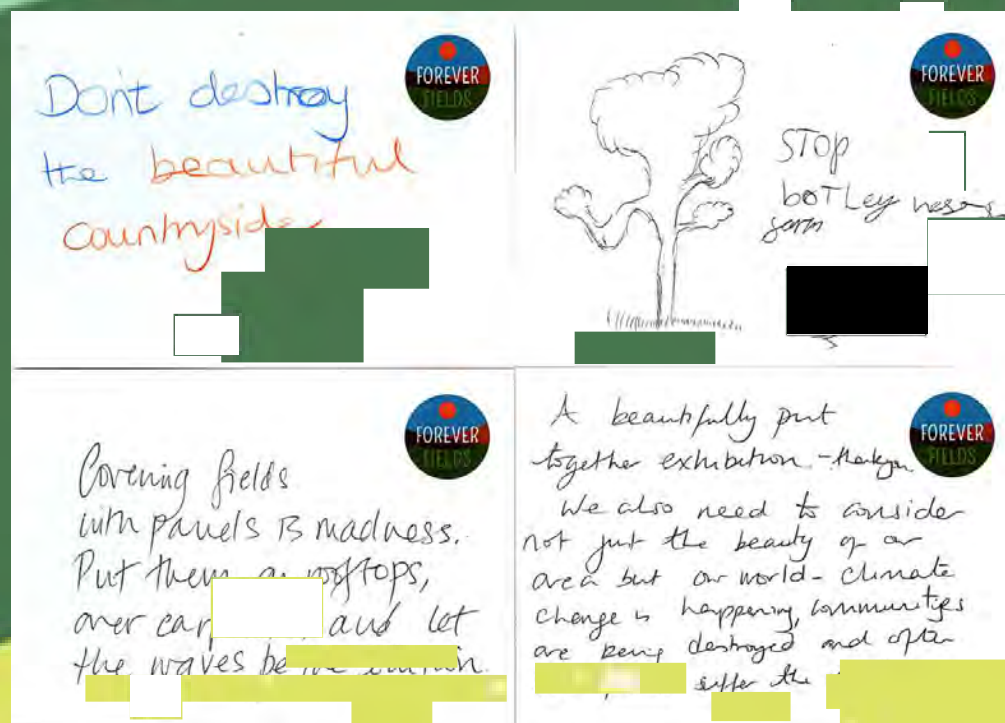 FOREVER
FIELDS
Don't destroy
the beautiful
countryside
FOREVER
FIELDS
STOP
boTLey
farm
FOREVER
FIELDS
Covering fields
with panels is madness.
Put them on rooftops,
over car
and let
the waves be
FOREVER
FIELDS
A beautifully put
together exhibition - thankyou
We also need to consider
not just the beauty of our
area but our world - climate
change is happening, communities
are being destroyed and often
suffer the